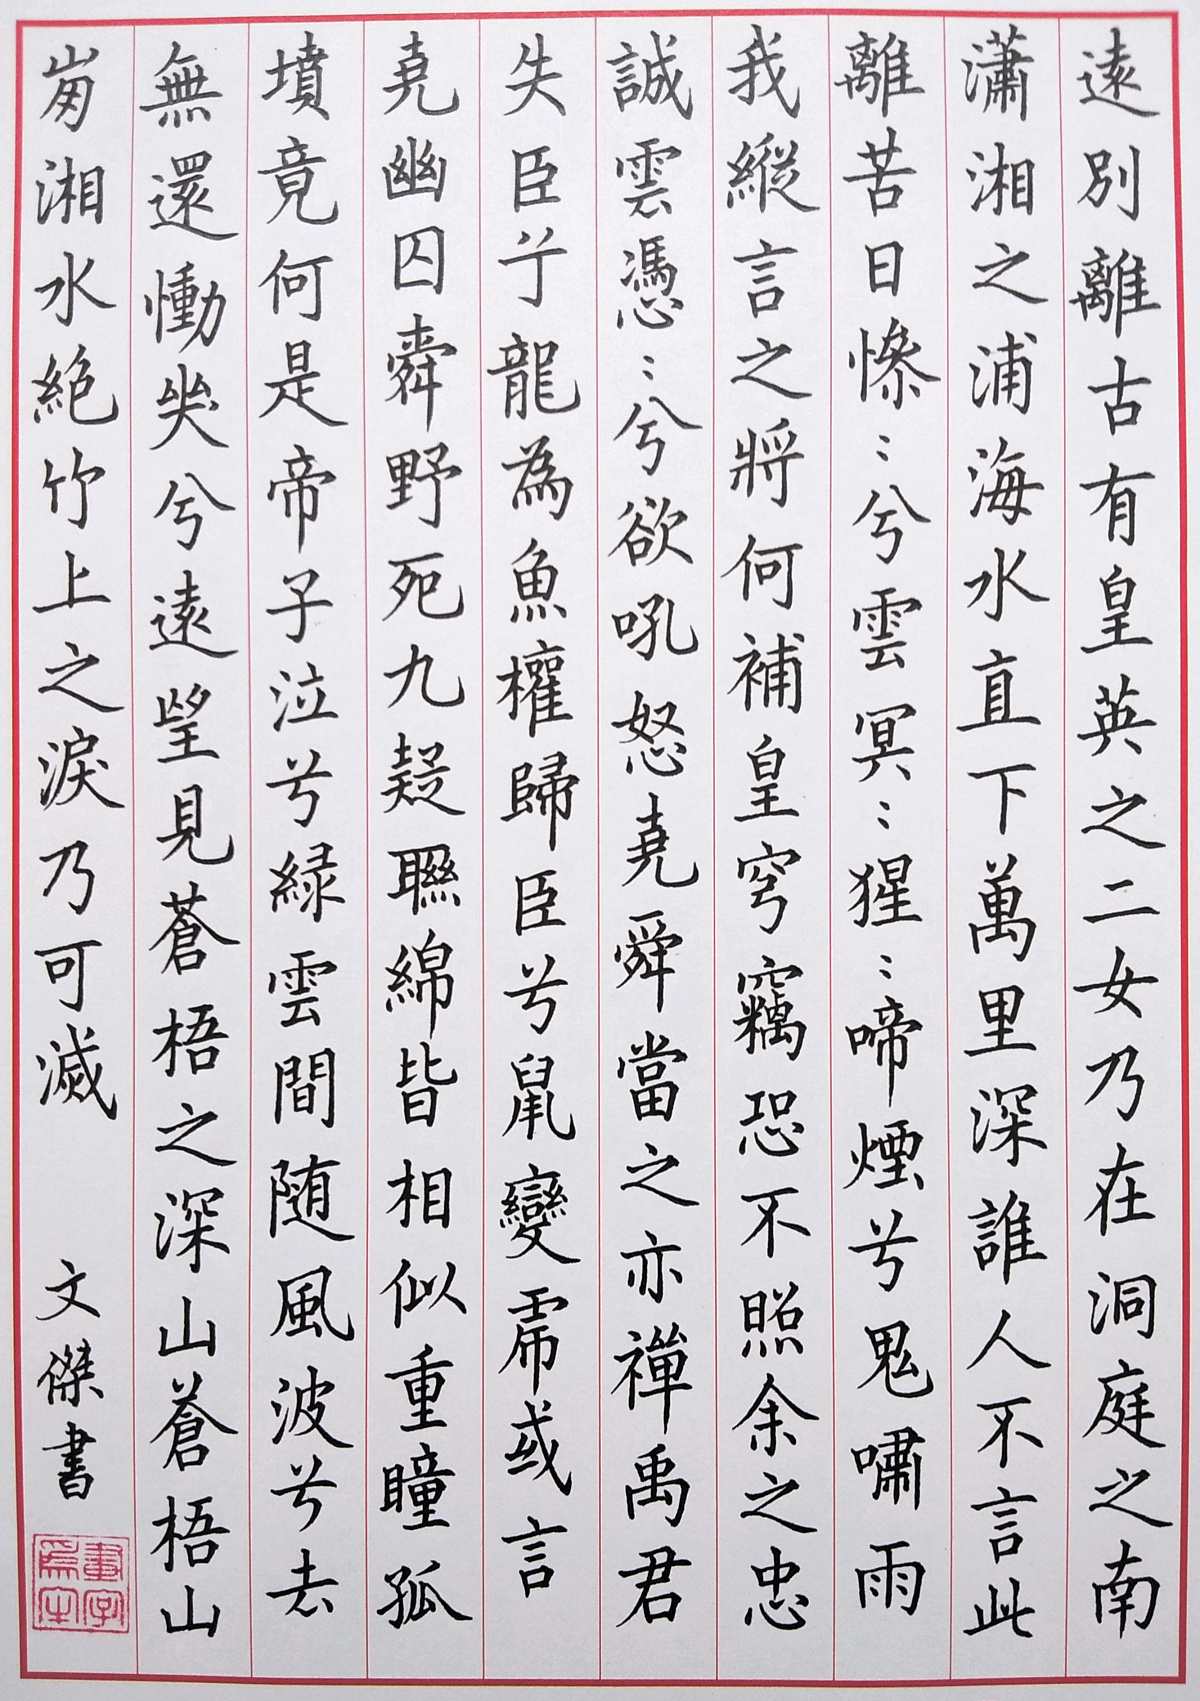 遠別離古有皇英之二女乃在洞庭之南
瀟湘之浦海水直下萬里深誰人不言此
離苦日慘〻兮雲冥〻猩〻啼煙兮鬼嘯雨
我縱言之將何補皇穹竊恐不照余之忠
誠雲憑〻兮欲吼怒堯舜當之亦禪禹君
失臣兮龍為魚權歸臣兮鼠變虎或言
堯幽囚舜野死九疑聯綿皆相似重瞳孤
墳竟何是帝子泣兮緑雲間随風波兮去
無還慟哭兮遠望見蒼梧之深山蒼梧山
崩湘水絕竹上之淚乃可滅
文傑書